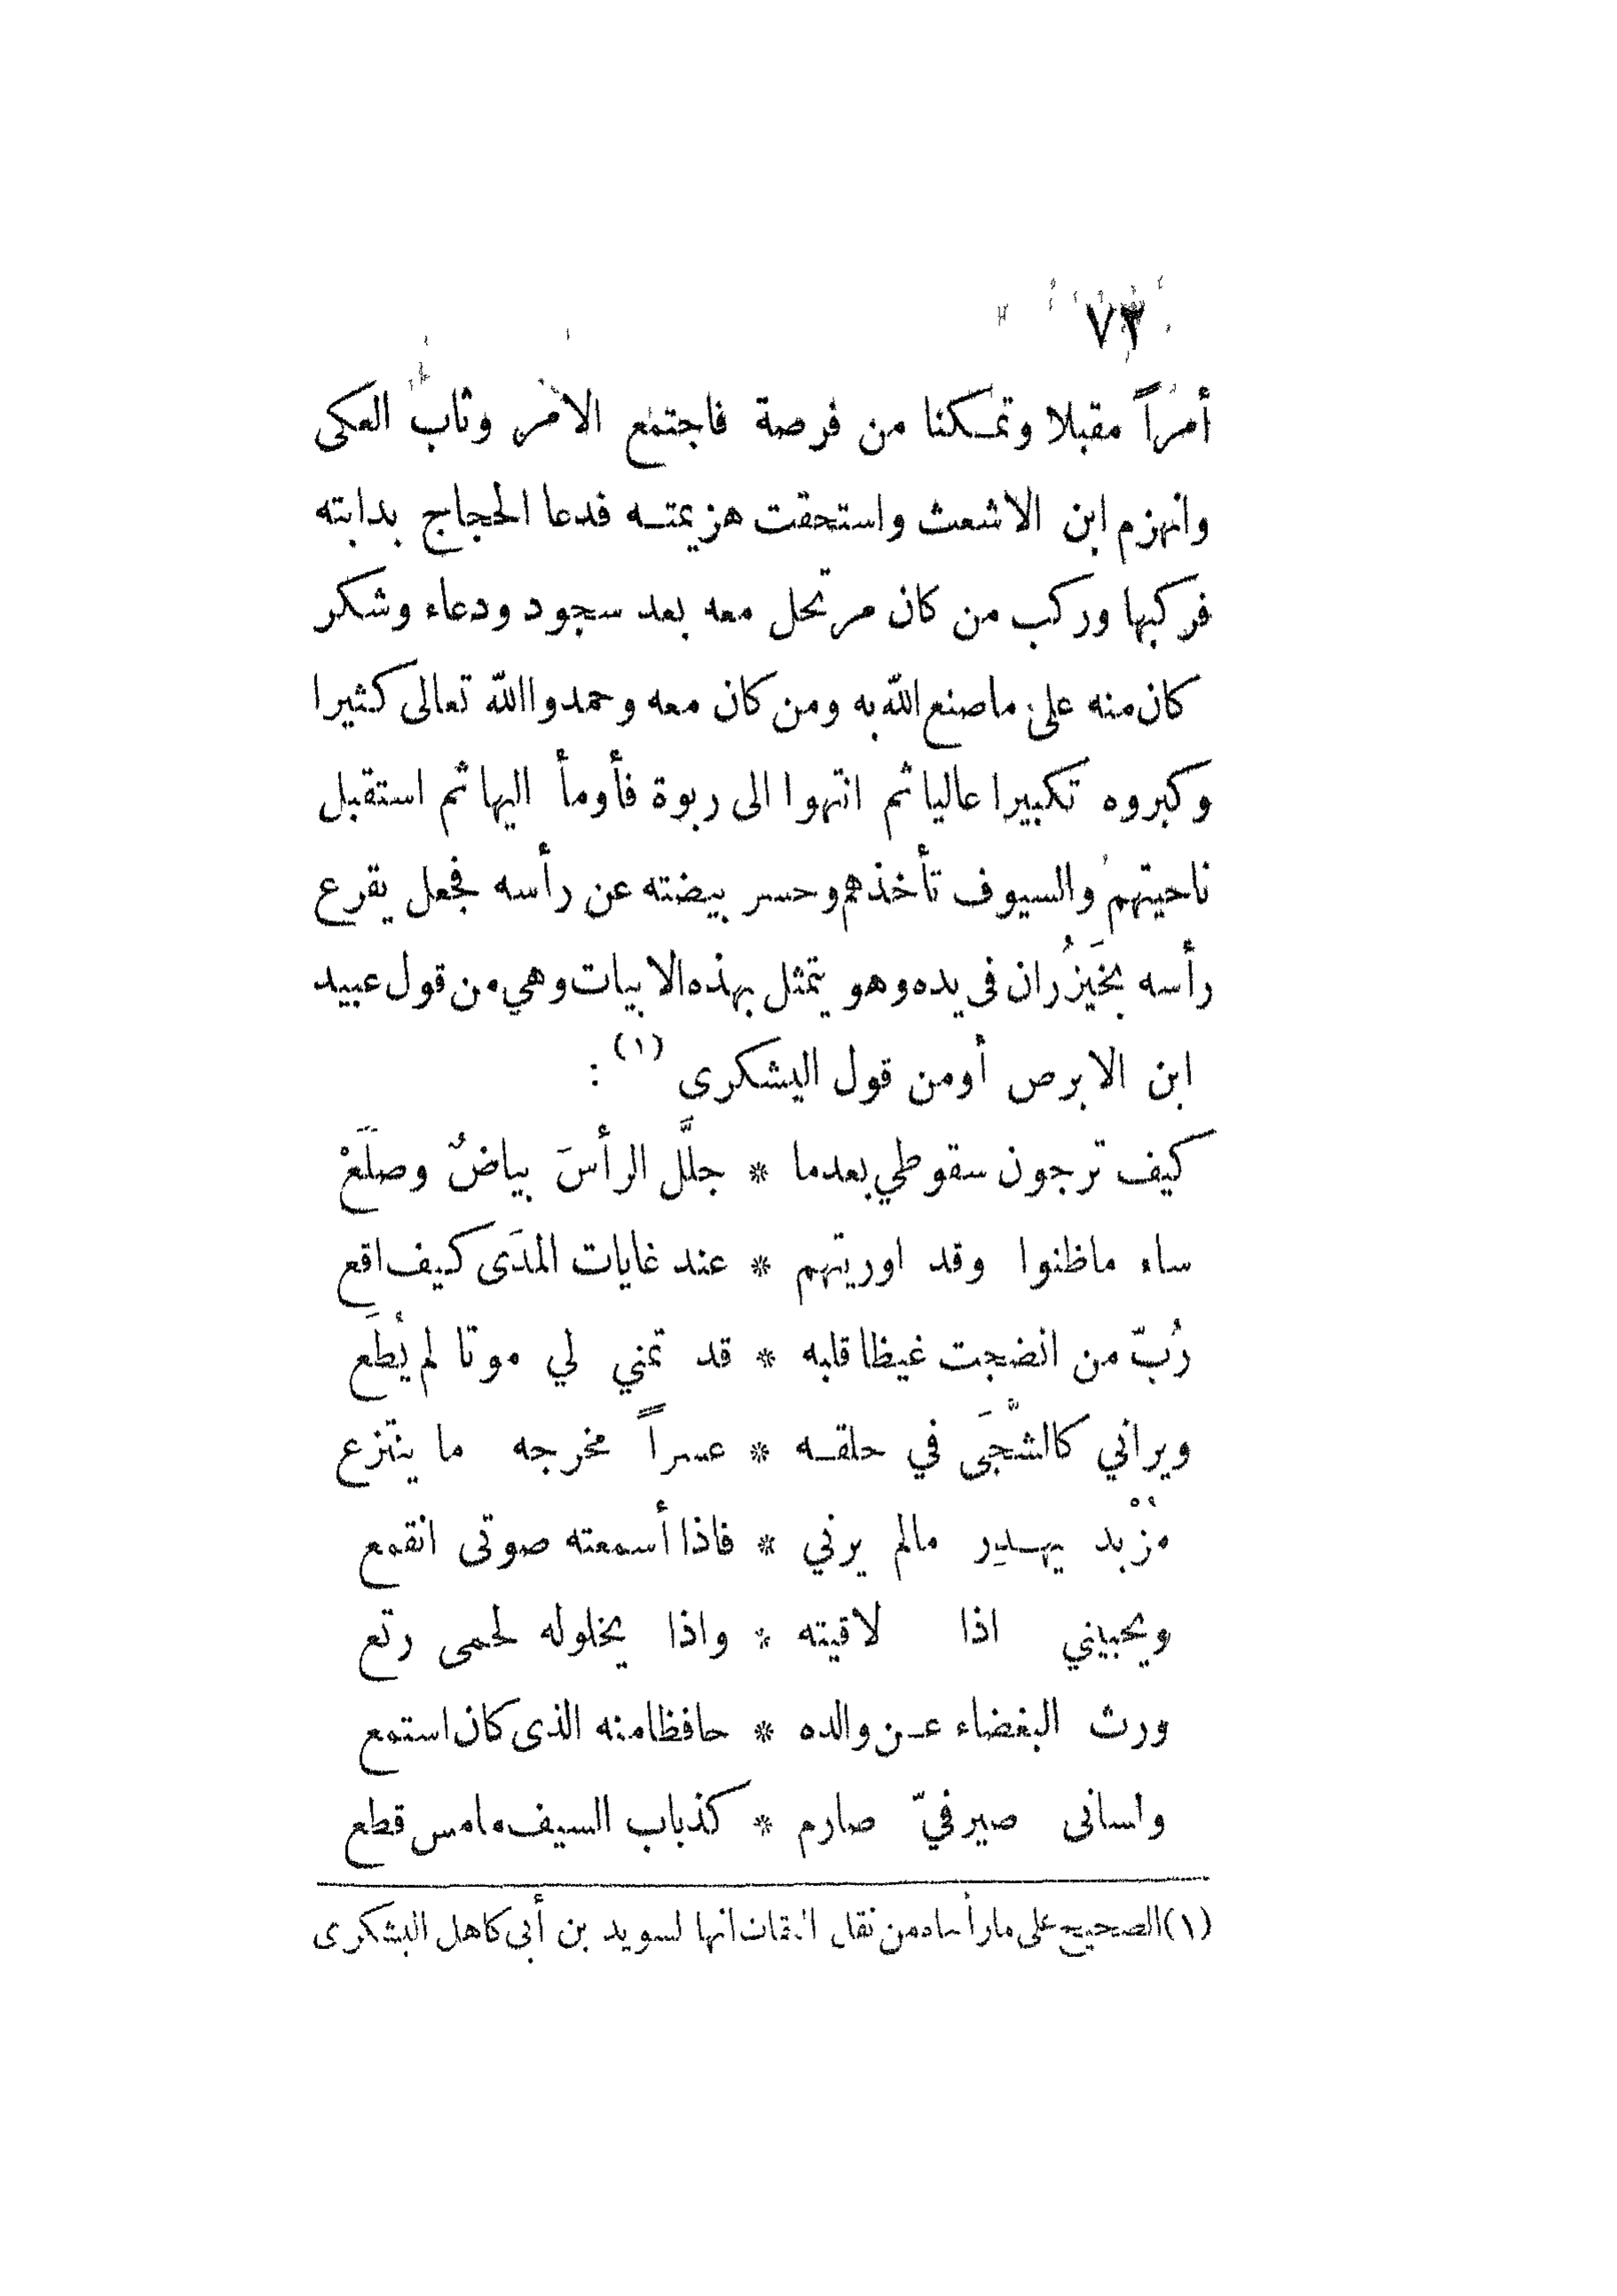 ٧٣
أمراً مقبلا وتمكنا من فرصة فاجتمع الامر وثاب العكى
وانهزم ابن الاشعث واستحقت هزيمته فدعا الحجاج بدابته
فركبها وركب من كان مرتحل معه بعد سجود ودعاء وشكر
كان منه على ما صنع الله به ومن كان معه وحمدوا الله تعالى كثيرا
وكبروه تكبيرا عاليا ثم انتهوا الى ربوة فأومأ اليها ثم استقبل
ناحيتهم والسيوف تأخذهم وحسر بيضته عن رأسه فجعل يقرع
رأسه بخَيزُران فى يده وهو يتمثل بهذه الابيات وهي من قول عبيد
ابن الابرص أومن قول اليشكرى (١) :
كيف ترجون سقوطي بعدما * جلَّل الرأسَ بياضٌ وصلَعْ
ساء ماظنوا وقد اوريتهم * عند غايات المدَى كيف اقع
رُبّ من انضجت غيظا قلبه * قد تمني لي موتا لم يُطَع
ويراني كالشَّجَى في حلقه * عسراً مخرجه ما ينتزع
مُزْبد يهدِر مالم يرني * فاذا أسمعته صوتى انقمع
ويحييني اذا لاقيته * واذا يخلوله لحمى رتع
ورث البغضاء عن والده * حافظا منه الذى كان استمع
ولسانى صيرفيّ صارم * كذباب السيف مامس قطع
(١) الصحيح على مارأيناه من نقل الثقات انها لسويد بن أبى كاهل اليشكرى